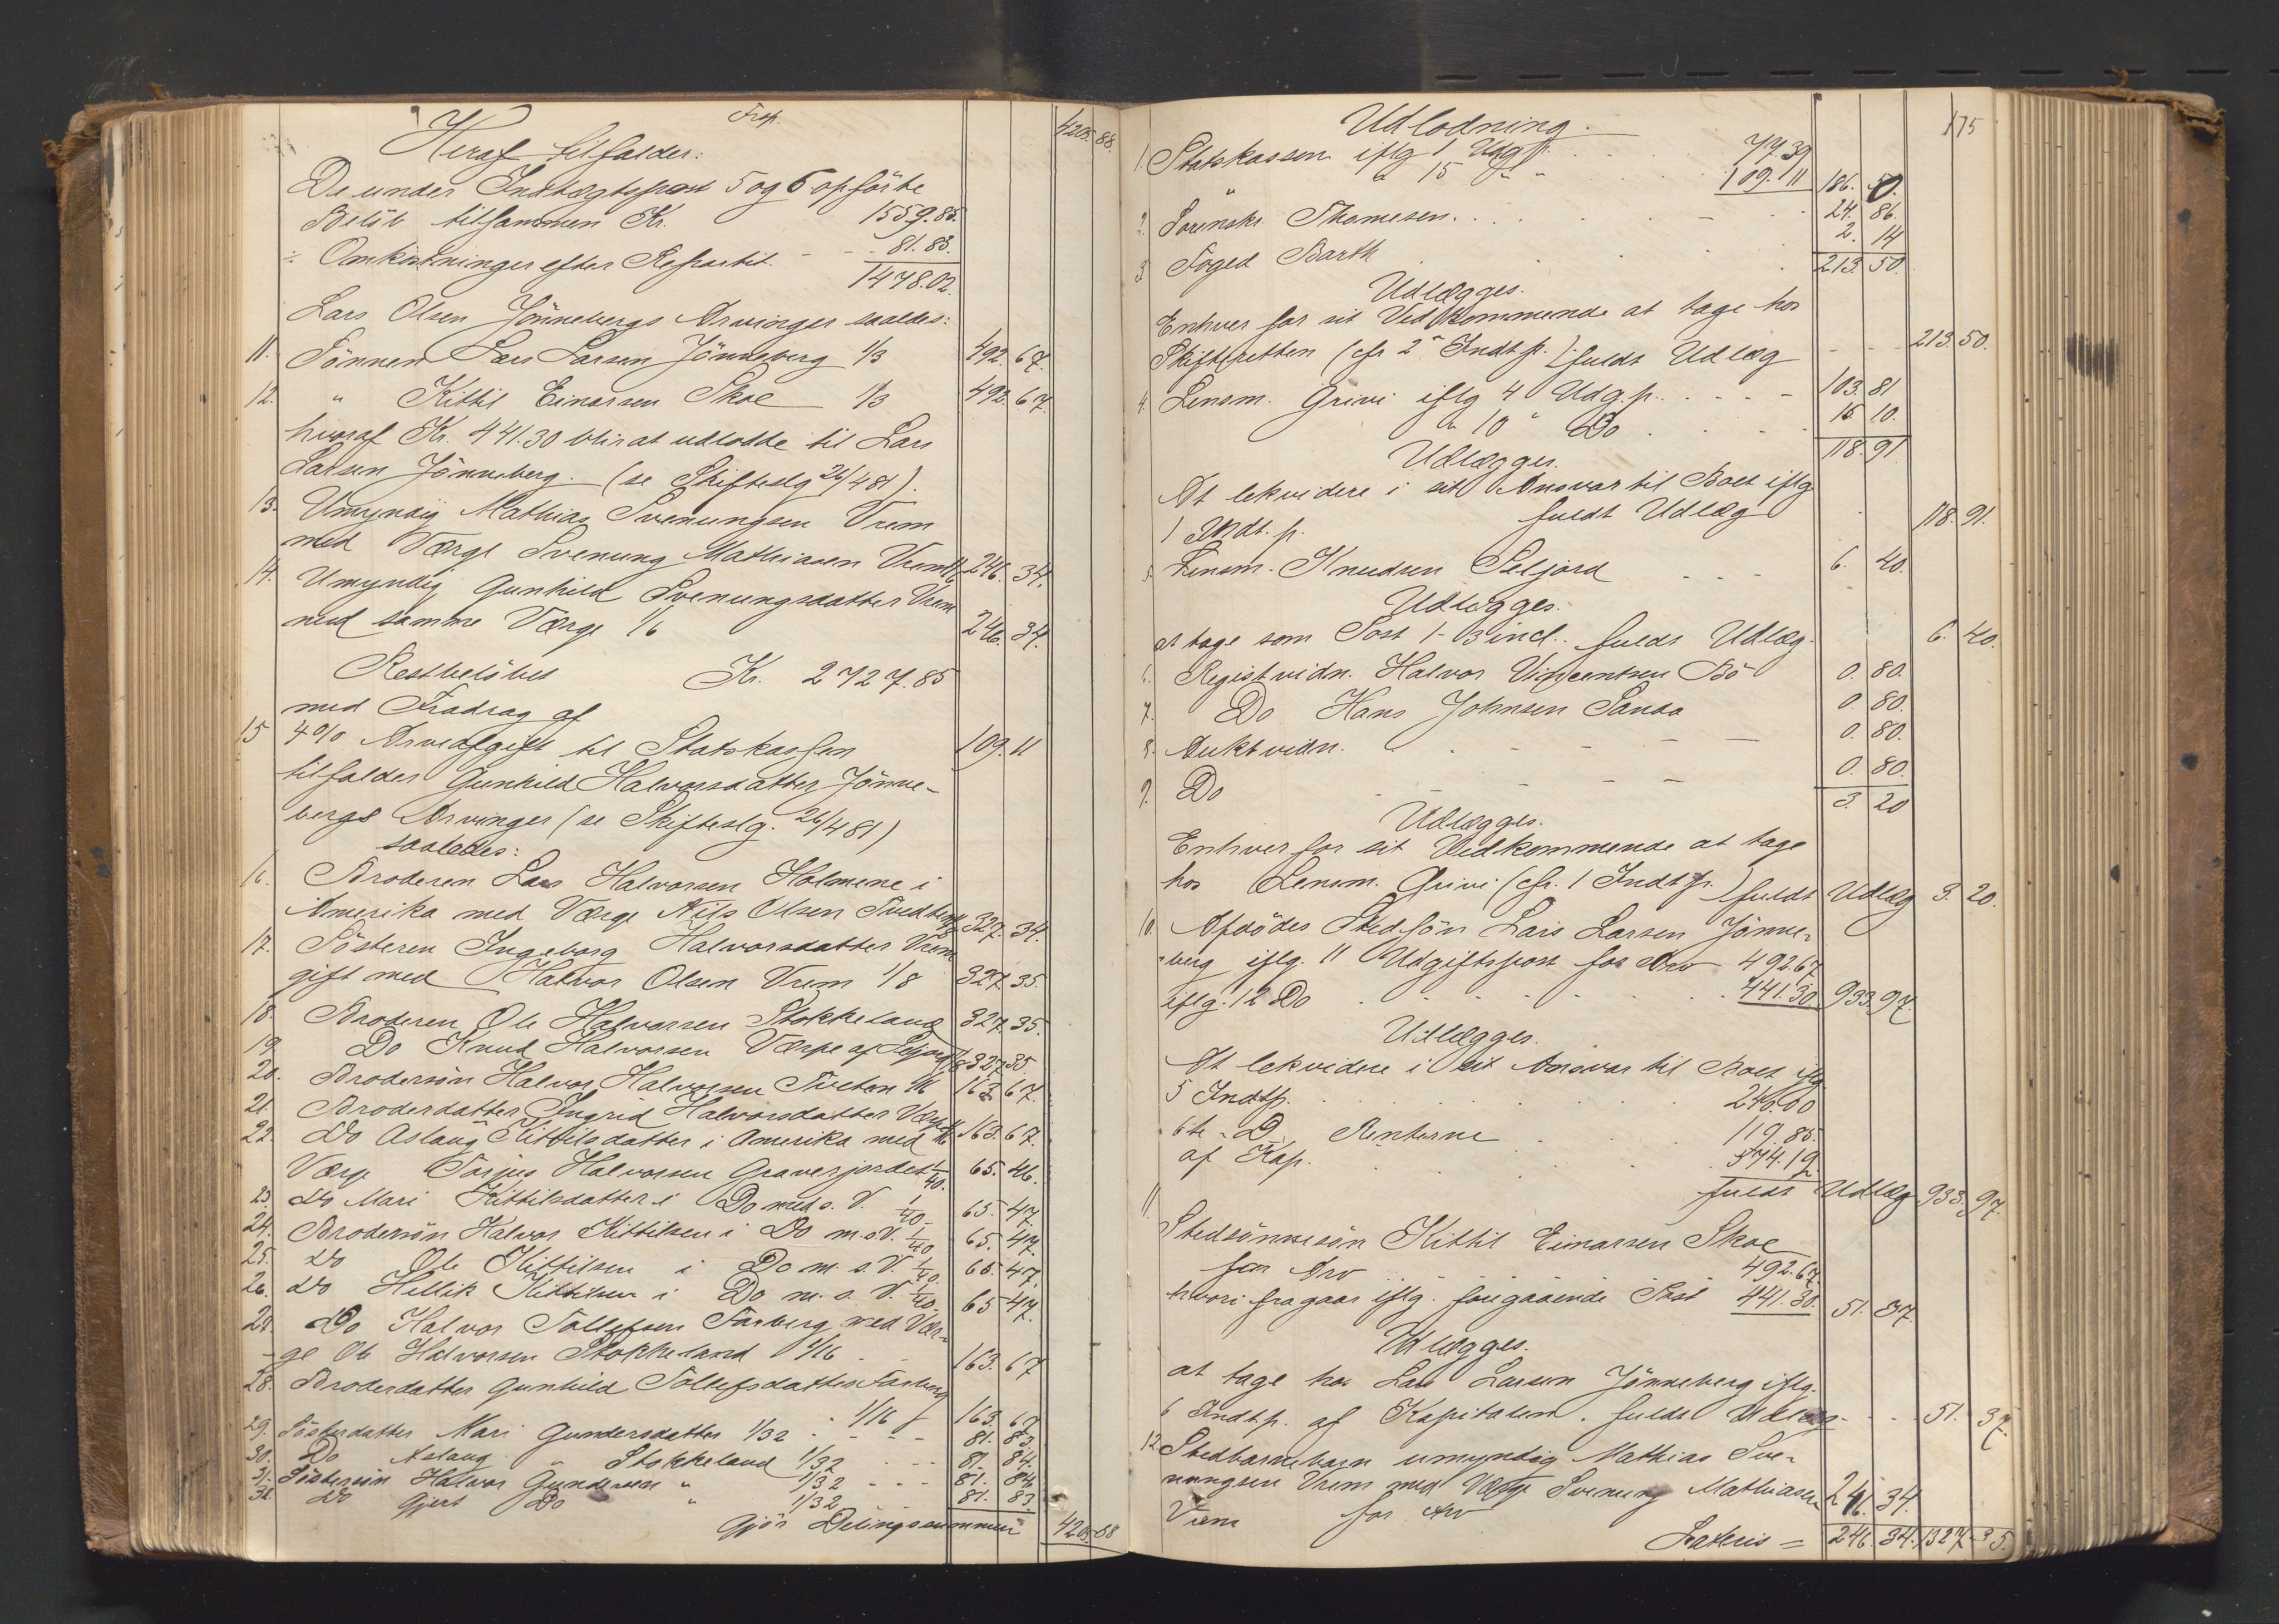 Trsp. 4205. 88.
Heraf tilfalder:
De under Indtægtspost 5 og 6 opförte
Belöb tilsammen Kr. 1559.85.
÷ Omkostninger efter Repartit. - - 81.83.
1478.02.
Lars Olsen Jönnebergs Arvinger saaledes:
11. Sönnen Lars Larsen Jönneberg 1/3 492. 67.
12. " Kittil Einarsen Skoe 1/3 492. 67.
hvoraf Kr. 441.30 blir at udlodde til Lars
Larsen Jönneberg. (se Skifteslg 26/4 81).
13. Umyndig Mathias Svenungsen Vrem
med Værge Svenung Mathiasen Vrem 1/6 246. 34.
14. Umyndig Gunhild Svenungsdatter Vrem
med samme Værge 1/6 246. 34.
Restbelöbet Kr. 2727.85
med Fradrag af
15 4% Arveafgift til Statskassen 109. 11
tilfalder Gunhild Halvorsdatter Jönne-
bergs Arvinger (se Skifteslg. 26/4 81)
saaledes:
16. Broderen Lars Halvorsen Holmene i
Amerika med Værge Nils Olsen Tvedten 1/8 327. 34.
17. Sösteren Ingeborg Halvorsdatter Vrem
gift med Halvor Olsen Vrem 1/8 327. 35.
18. Broderen Ole Halvorsen Stokkeland 327. 35.
19. Do Knud Halvorsen Værpe af Seljord 1/8 327. 35.
20. Brodersön Halvor Halvorsen 1/16 163. 67.
21. Broderdatter Ingrid Halvorsdatter 1/16 163. 67.
22. Do Aslaug Kittilsdatter i Amerika med
Værge Torjus Halvorsen Graverjordet 1/40. 65. 46.
23 Do Mari Kittilsdatter i Do med s. V. 1/40. 65. 47.
24. Brodersön Halvor Kittilsen i Do m. s. V. 1/40. 65. 47.
25. Do Ole Kittilsen i Do m. s. V. 1/40. 65. 47.
26. Do Hellik Kittilsen i Do m. s. V. 1/40. 65 47.
27. Do Halvor Tollefsen Farberg med Vær-
-ge Ole Halvorsen Stokkeland 1/16 163. 67
28. Broderdatter Gunhild Tollefsdatter Farberg
1/16 163. 67.
29. Sösterdatter Mari Gundersdatter 1/32 - - - 81. 83.
30. Do Aslaug " Stokkeland 1/32 - - - 81. 84.
31. Söstersön Halvor Gundersen " 1/32 - - - 81. 84.
32 Do Gjert Do " 1/32 81. 83.
Gjör Delingssummen 4205.88
175
Udlodning.
1. Statskassen iflg 1 Udg. 77.39
" " 15 " " 109.11 186. 50.
2. Sorenskr. Thomesen. 24. 86.
3 Foged Barth 2. 14
213. 50.
Udlægges.
Enhver for sit Vedkommende at tage hos
Skifteretten (cfr 2 Indt.p.) fuldt Udlæg - - - 213. 50.
4. Lensm. Grivi iflg 4 Udg.p. 103. 81
" 10 " Do 15 10.
118. 91
Udlægges.
At lekvidere i sit Ansvar til Boet iflg
1 Indt.p. fuldt Udlæg 118. 91.
5. Lensm. Knudsen Seljord - - - 6. 40.
Udlægges.
at tage som Post 1-3 incl. fuldt Udlæg. 6. 40.
6. Registvidn. Halvor Vincentsen Bö 0. 80.
7. Do Hans Johnsen Sanda 0. 80.
8. Auktvidn. - - - 0. 80.
9. Do - - - 0. 80.
3. 20
Udlægges.
Enhver for sit Vedkommende at tage
hos Lensm. Grivi (cfr. 1 Indt.p.) fuldt Udlæg 3. 20.
10. Afdödes Stedsön Lars Larsen Jönne-
-berg iflg. 11 Udgiftspost for Arv 492.67
iflg. 12 Do 441.30. 933. 97.
Udlægges.
At lekvidere i sit Ansvar til Boet iflg
5 Indtp. 240.00
6te D. Renterne 119.85.
af Kap. 574.12
fuldt Udlæg 933. 97.
11 Stedsönnesön Kittil Einarsen Skoe
for Arv 492.67.
hvori fragaar iflg. foregaaende Post 441.30. 51. 37.
Udlægges.
at tage hos Lars Larsen Jönneberg iflg.
6 Indt.p. af Kapitalen. fuldt Udlæg - - - 51. 37.
12. Stedbarnebarn umyndig Mathias Sve-
nungsen Vrem med Værge Svenung Mathiasen
Vrem for Arv 246. 34.
Lateris = 246. 34. 1327. 35.